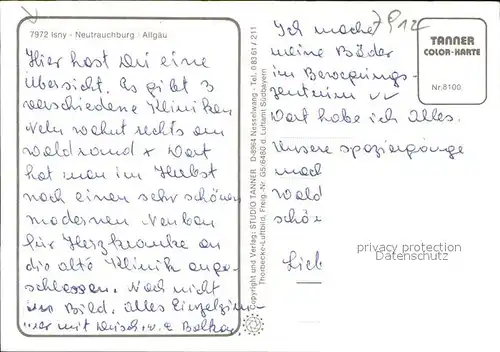 7972 Isny - Neutrauchburg / Allgäu
Hier hast Du eine
Übersicht. Es gibt 3
verschiedene Kliniken
wohnt rechts am
Waldrand x Dort
hat man im Herbst
noch einen sehr schönen
modernen Neubau
für Herzkranke an
die alte Klinik ange-
schlossen. Noch nicht
im Bild. Alles Einzelzim-
mer mit Dusch. u. Balkon
Copyright und Verlag: STUDIO TANNER D-8964 Nesselwang - Tel. 0 83 61 / 211
Thorbecke-Luftbild, Freig.-Nr. G5/6460 d. Luftamt Südbayern
TANNER
COLOR-KARTE
Nr. 8100
Ich mache
meine Bäder
im Bewegungs-
zentrum vv
Dort habe ich alles.
Unsere Spaziergänge
nach
Wald
schön
privacy protection
Datenschutz
Lieb